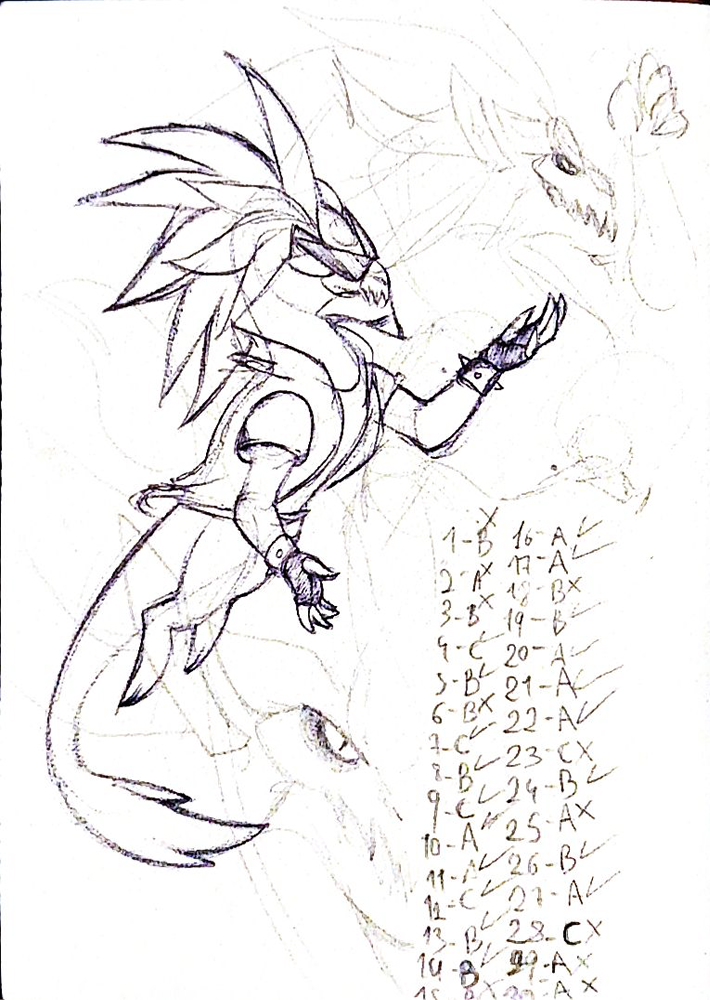 1-B X
2-A X
3-B X
4-C ✓
5-B ✓
6-B X
7-C ✓
8-B ✓
9-C ✓
10-A ✓
11-A ✓
12-C ✓
13-B ✓
14-B
15-B X
16-A ✓
17-A ✓
18-B X
19-B ✓
20-A ✓
21-A ✓
22-A ✓
23-C X
24-B ✓
25-A X
26-B ✓
27-A ✓
28-C X
29-A X
30-A X